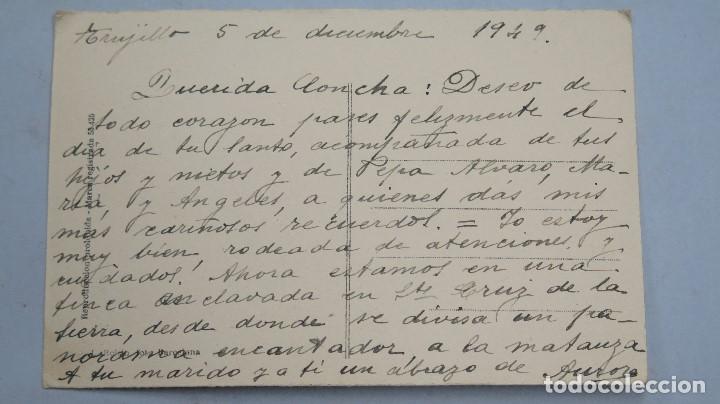 Trujillo 5 de diciembre 1949.
Querida Concha: Deseo de
todo corazon pases felizmente el
día de tu santo, acompañada de tus
hijos y nietos y de Pepa Alvaro, Ma-
ría y Angeles, a quienes dás mis
más cariñosos recuerdos. = Yo estoy
muy bien, rodeada de atenciones y
cuidados. Ahora estamos en una
finca enclavada en Sta Cruz de la
sierra, desde donde se divisa un pa-
norama encantador, a la matanza
A tu marido y a ti un abrazo de Aurora
Marca registrada 58.425
todocoleccion.net